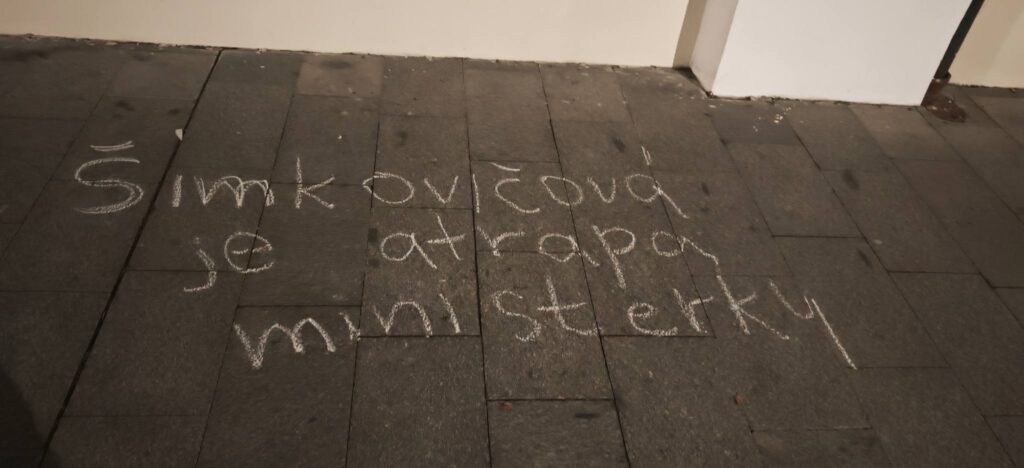 Šimkovičová
je atrapa
ministerky